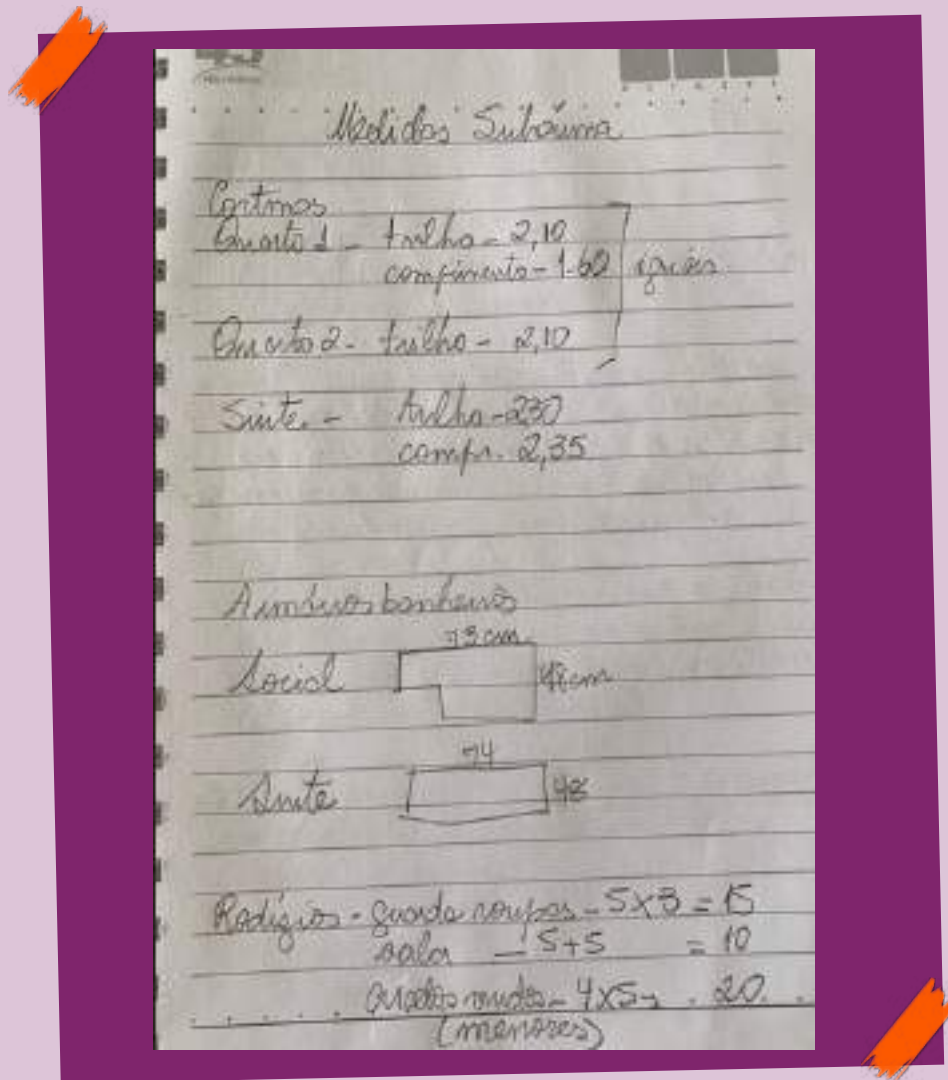 Medidas Subauma
Cortinas
Quarto 1 - trilho - 2,10
comprimento - 1.60 iguais
Quarto 2 - trilho - 2,10
Suíte - trilho - 230
compr. 2,35
Armários banheiros
73 cm
Social 48cm
74
Suíte 48
Rodízios - guarda roupas - 5x3 = 15
sala - 5+5 = 10
criados mudos - 4x5 - 20
(menores)